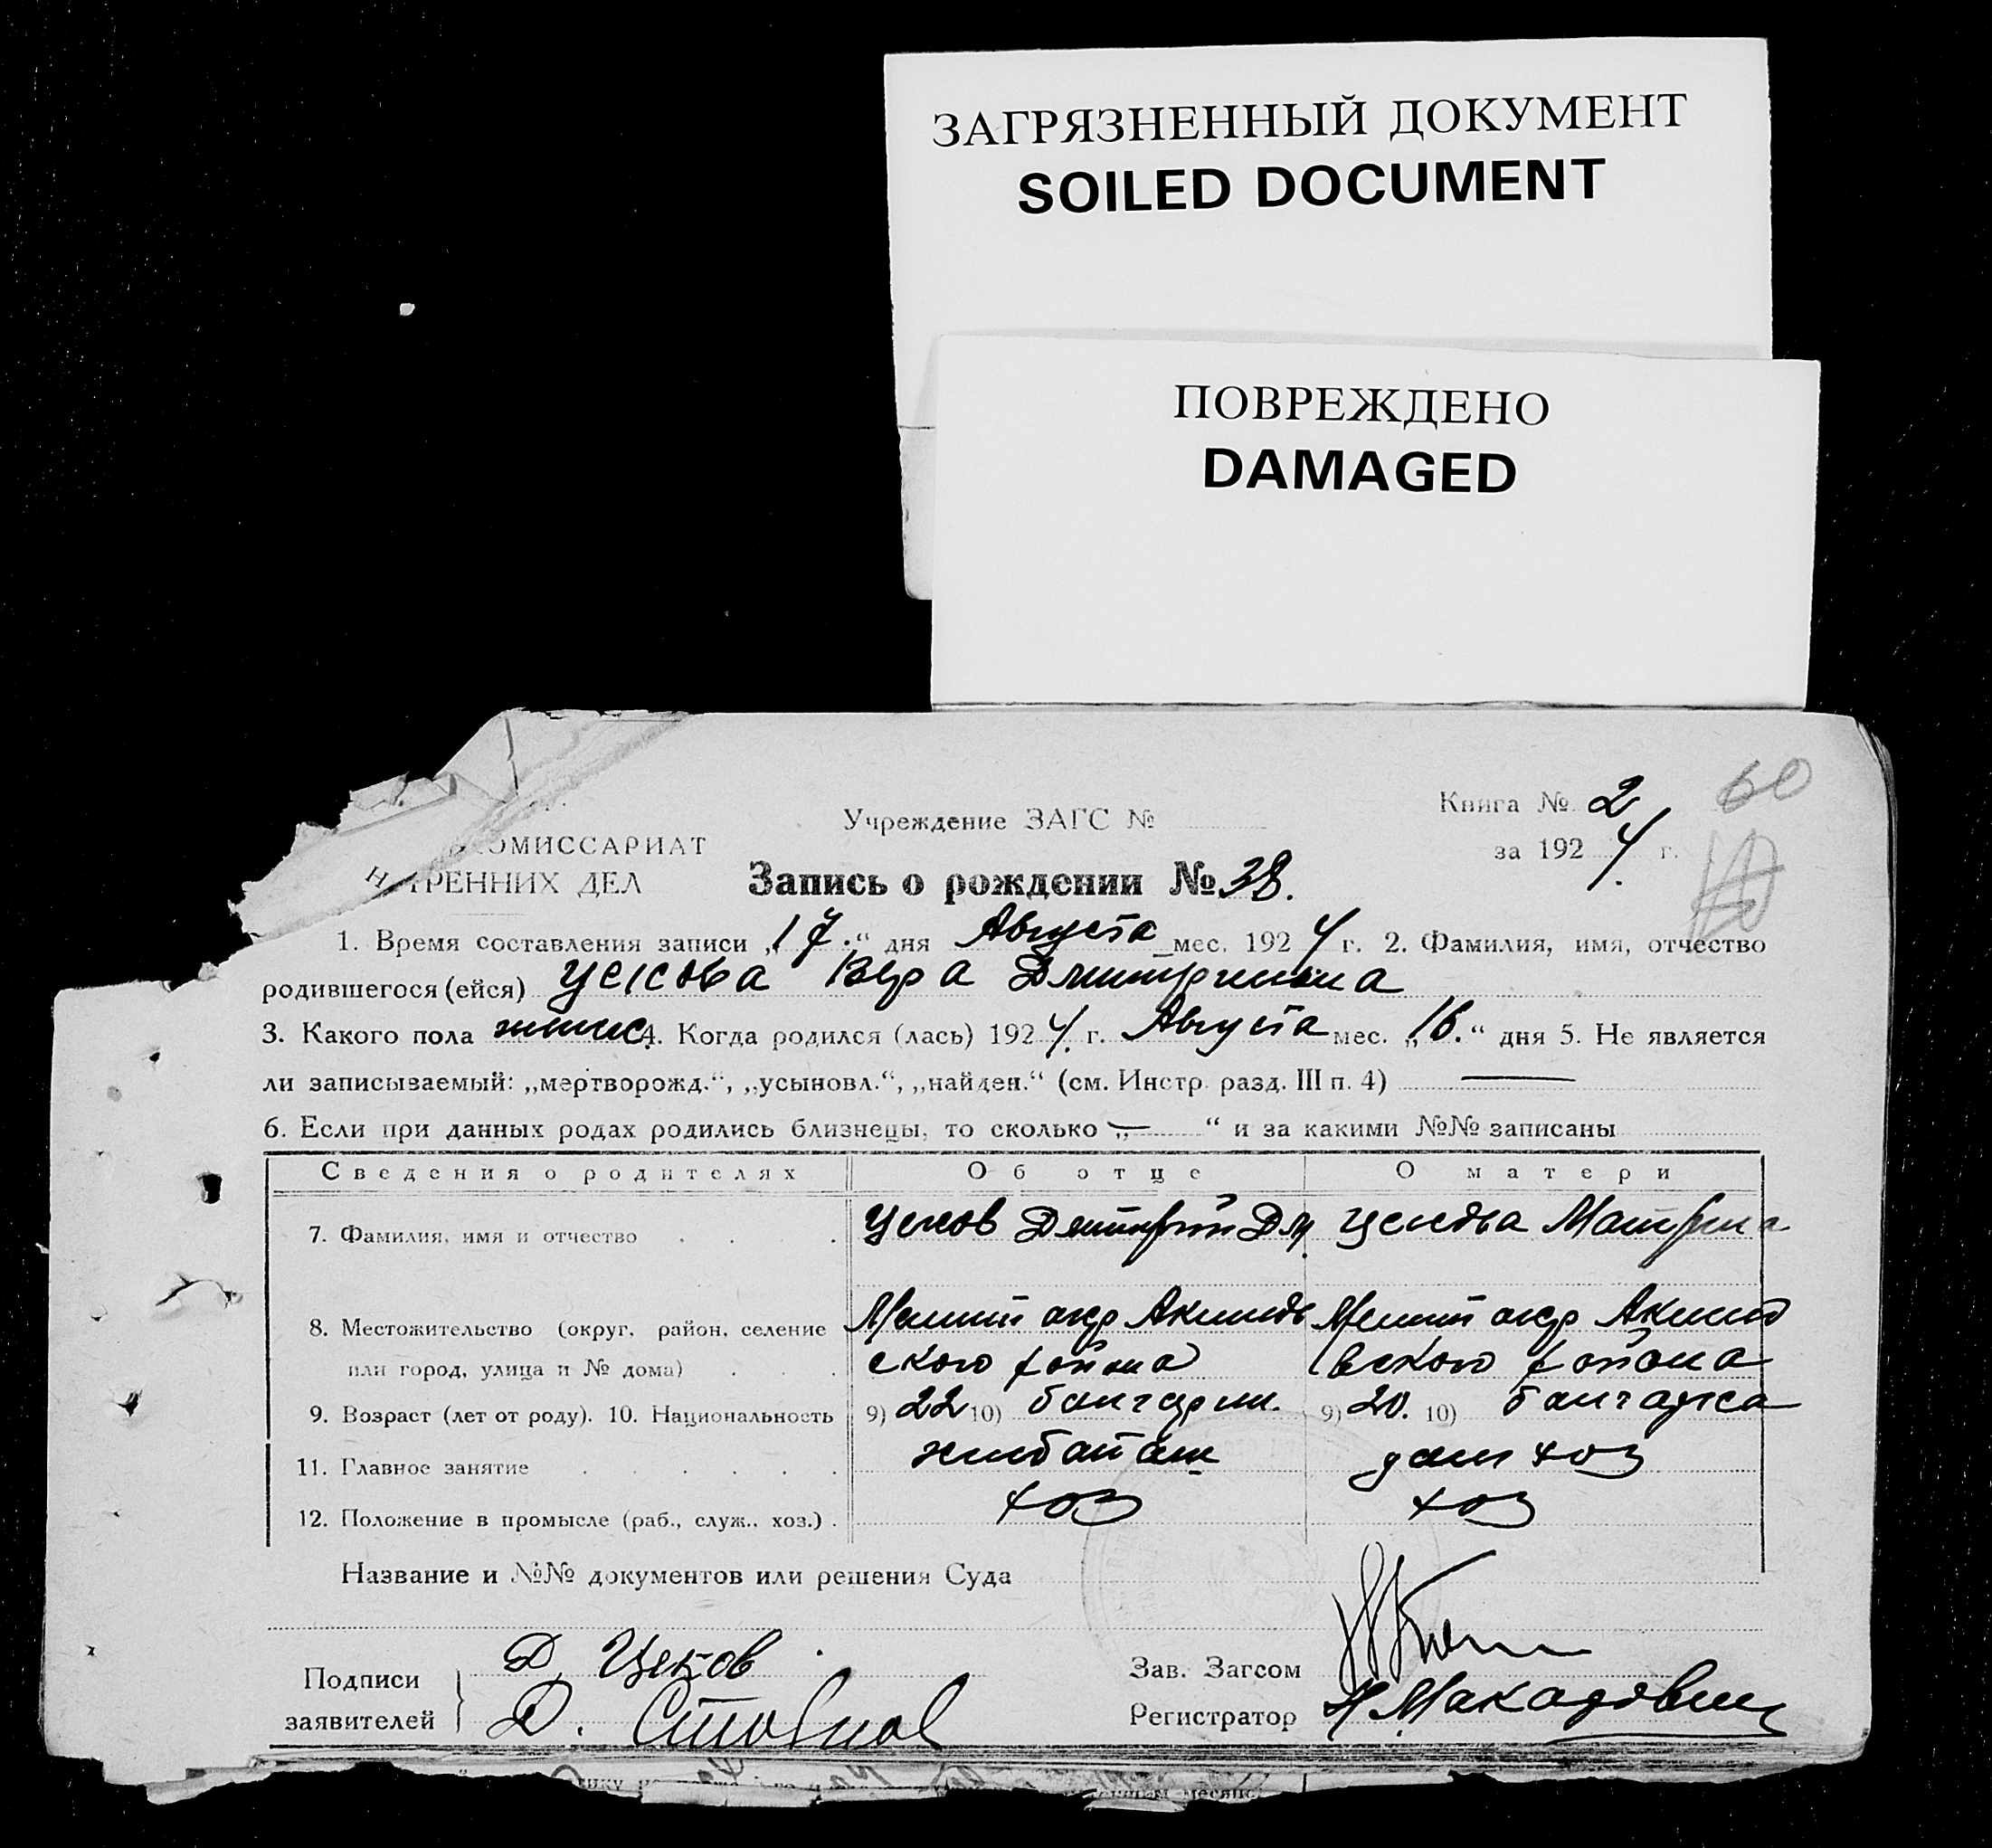 ЗАГРЯЗНЕННЫЙ ДОКУМЕНТ
SOILED DOCUMENT
ПОВРЕЖДЕНО
DAMAGED
60
Книга № 2
за 1924 г.
Учреждение ЗАГС №
ОМИССАРИАТ
ТРЕННИХ ДЕЛ
Запись о рождении № 38.
1. Время составления записи „17.“ дня Августа мес. 1924 г. 2. Фамилия, имя, отчество
родившегося (ейся) Цекова Вера Дмитриевна
3. Какого пола женск. 4. Когда родился (лась) 1924 г. Августа мес. „16.“ дня 5. Не является
ли записываемый: „мертворожд.“, „усыновл.“, „найден.“ (см. Инстр. разд. III п. 4) —
6. Если при данных родах родились близнецы, то сколько „—“ и за какими №№ записаны
Сведения о родителях Об отце О матери
7. Фамилия, имя и отчество Цеков Дмитрий Дм. Цекова Матрена
8. Местожительство (округ, район, селение Мелит окр Акимов Мелит окр Акимо
или город, улица и № дома) ского района вского района
9. Возраст (лет от роду). 10. Национальность 9) 22 10) болгарин. 9) 20. 10) болгарка
11. Главное занятие хлебопаш дом хоз
12. Положение в промысле (раб., служ., хоз.) хоз хоз
Название и №№ документов или решения Суда
Подписи заявителей
Д. Цеков
Д.
Зав. Загсом
Регистратор